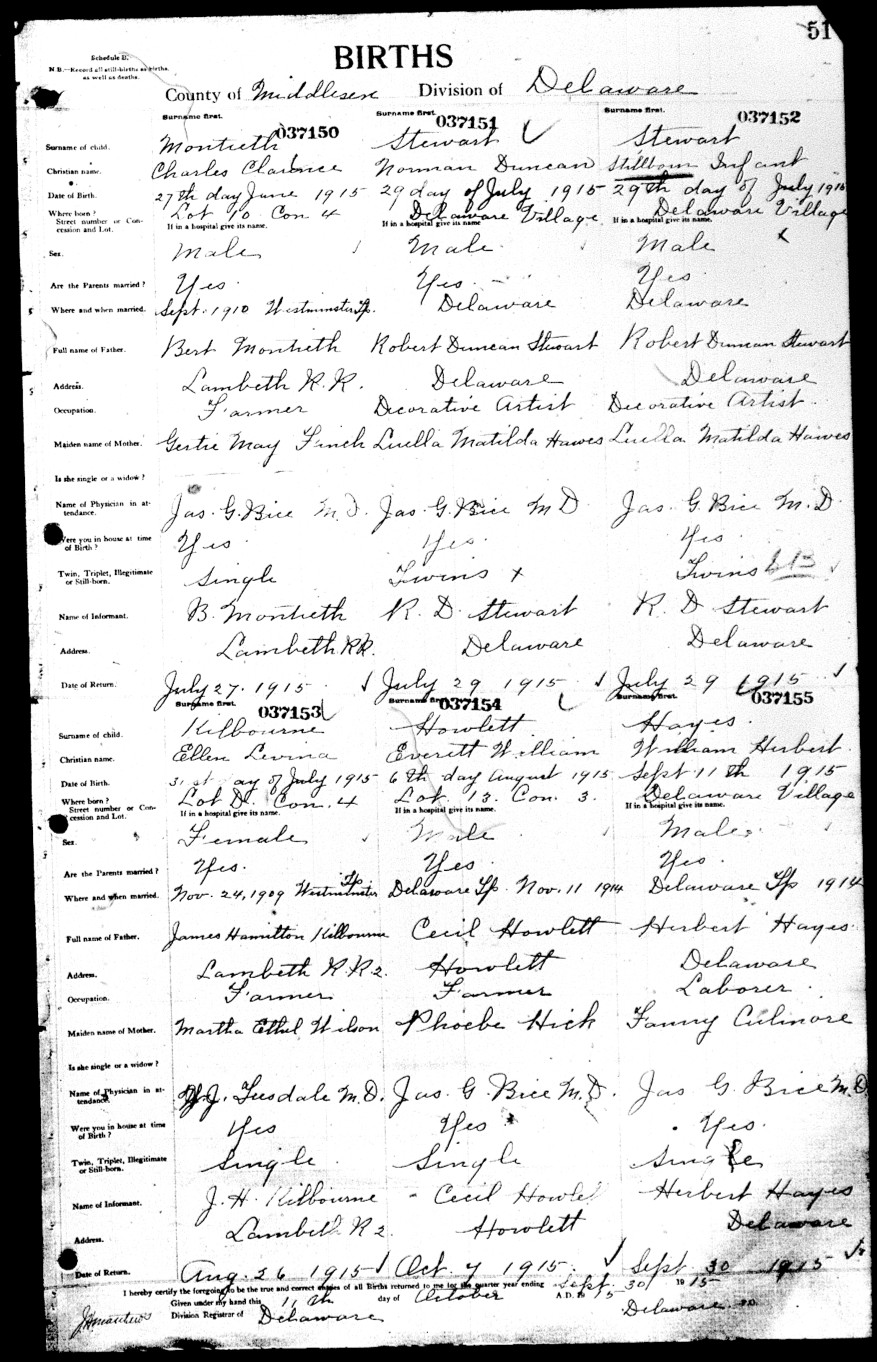 51
Schedule B.
BIRTHS
N.B.—Record all still-births as births, as well as deaths.
County of Middlesex Division of Delaware
Surname first. Surname first. Surname first.
037150 037151 037152
Surname of child. Montieth Stewart Stewart
Christian name. Charles Clarence Norman Duncan Stillborn Infant
Date of Birth. 27th day June 1915 29 day of July 1915 29th day of July 1915
Where born? Lot 10 Con 4 Delaware Village Delaware Village
Street number or Concession and Lot. If in a hospital give its name. If in a hospital give its name. If in a hospital give its name.
Sex. Male Male Male x
Are the Parents married? Yes. Yes. Yes.
Where and when married. Sept. 1910 Westminster Tp. Delaware Delaware
Full name of Father. Bert Montieth Robert Duncan Stewart Robert Duncan Stewart
Address. Lambeth R.R. Delaware Delaware
Occupation. Farmer Decorative Artist Decorative Artist.
Maiden name of Mother. Gertie May Finch Luella Matilda Hawes Luella Matilda Hawes
Is she single or a widow?
Name of Physician in attendance. Jas. G. Bice M.D. Jas G. Bice M D Jas G Bice M.D.
Were you in house at time of Birth? Yes. Yes. Yes.
Twin, Triplet, Illegitimate or Still-born. Single Twins x Twins
Name of Informant. B. Montieth R. D. Stewart R. D Stewart
Address. Lambeth RR. Delaware Delaware
Date of Return. July 27. 1915 July 29 1915 July 29 1915
Surname first. Surname first. Surname first.
037153 037154 037155
Surname of child. Kilbourne Howlett Hayes.
Christian name. Ellen Levina Everett William William Herbert.
Date of Birth. 31 st ay of July 1915 6th day August 1915 Sept 11th 1915
Where born? Lot D. Con. 4 Lot 13. Con 3. Delaware Village
Street number or Concession and Lot. If in a hospital give its name. If in a hospital give its name. If in a hospital give its name.
Sex. Female Male Male.
Are the Parents married? Yes. Yes. Yes.
Where and when married. Nov. 24, 1909 Westminster Tp Delaware Tp Nov. 11 1914 Delaware Tp 1914
Full name of Father. James Hamilton Kilbourne Cecil Howlett Herbert Hayes.
Address. Lambeth R.R 2. Howlett Delaware
Occupation. Farmer Farmer Laborer.
Maiden name of Mother. Martha Ethel Wilson Phoebe Hick Fanny Culmore
Is she single or a widow?
Name of Physician in attendance. J. Teasdale M.D. Jas. G. Bice M.D. Jas G Bice M.D
Were you in house at time of Birth? Yes Yes Yes.
Twin, Triplet, Illegitimate or Still-born. Single. Single Single
Name of Informant. J. H. Kilbourne Cecil Howlet Herbert Hayes
Address. Lambeth R 2. Howlett Delaware
Date of Return. Aug. 26 1915 Oct. 7 1915. Sept 30 1915
I hereby certify the foregoing to be the true and correct entries of all Births returned to me for the quarter year ending Sept. 30 1915
Given under my hand this 11th day of October A.D. 1915
Division Registrar of Delaware Delaware P.O.